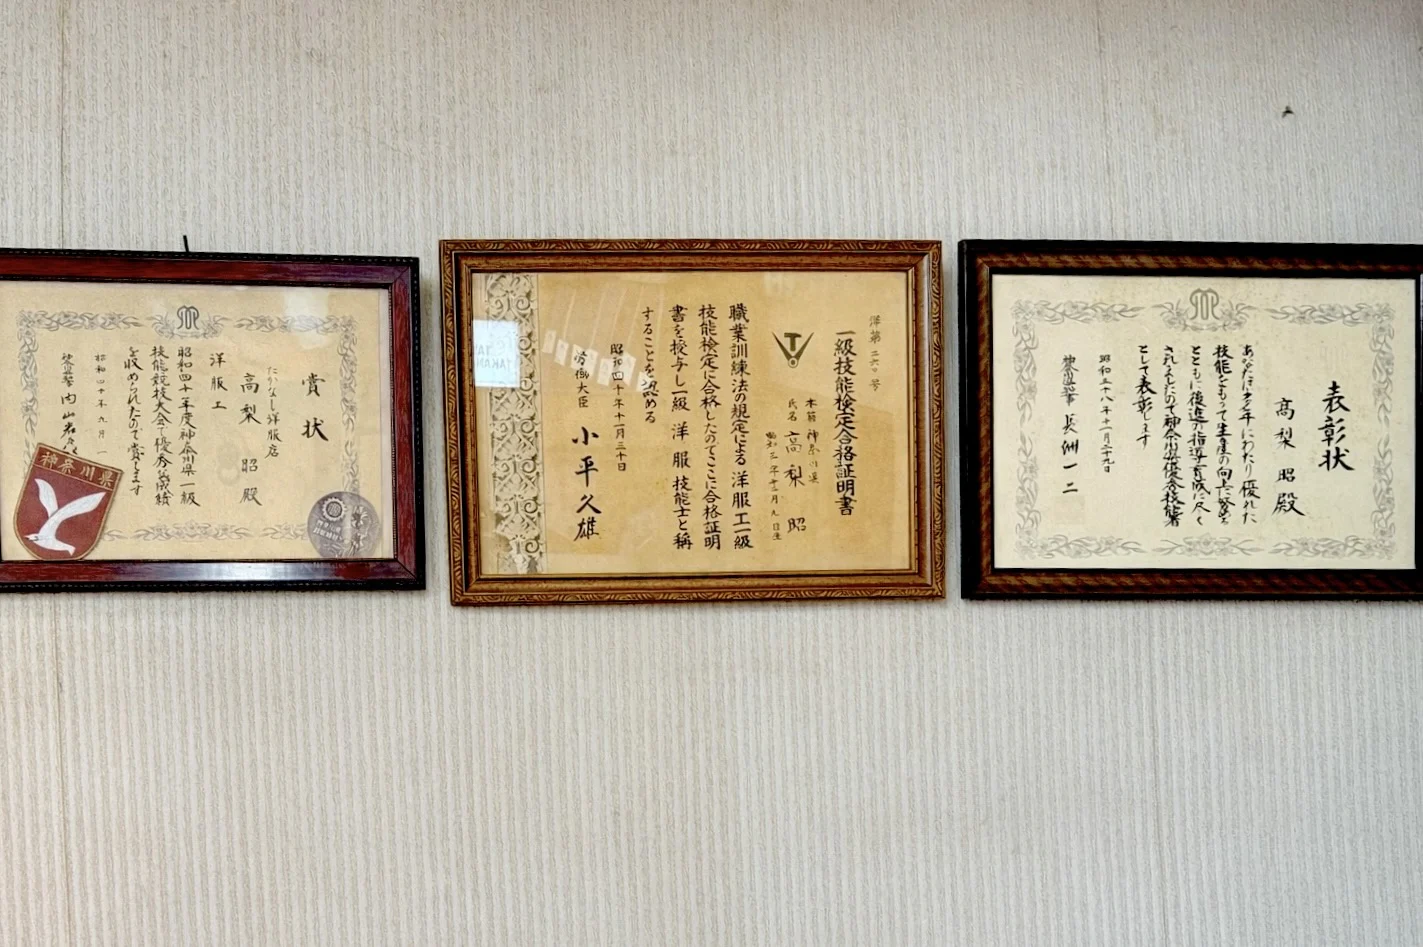 賞状
たかなし洋服店
高梨 昭 殿
洋服工
昭和四十年度神奈川県一級
技能競技大会で優秀な成績
を収められたので賞します
昭和四十年 九月 一
内山岩
神奈川県
洋第二六〇号
一級技能検定合格証明書
本籍 神奈川県
氏名 高梨 昭
昭和三年十二月九日生
職業訓練法の規定による 洋服工一級
技能検定に合格したのでここに合格証明
書を授与し一級 洋服 技能士と称
することを認める
昭和四十年十一月三十日
労働大臣 小平久雄
表彰状
高梨 昭殿
あなたは多年にわたり優れた
技能をもって生産の向上に努める
とともに後進の指導育成に尽く
されましたので神奈川県優秀技能者
として表彰します
昭和五十八年十一月二十九日
神奈川県知事 長洲一二